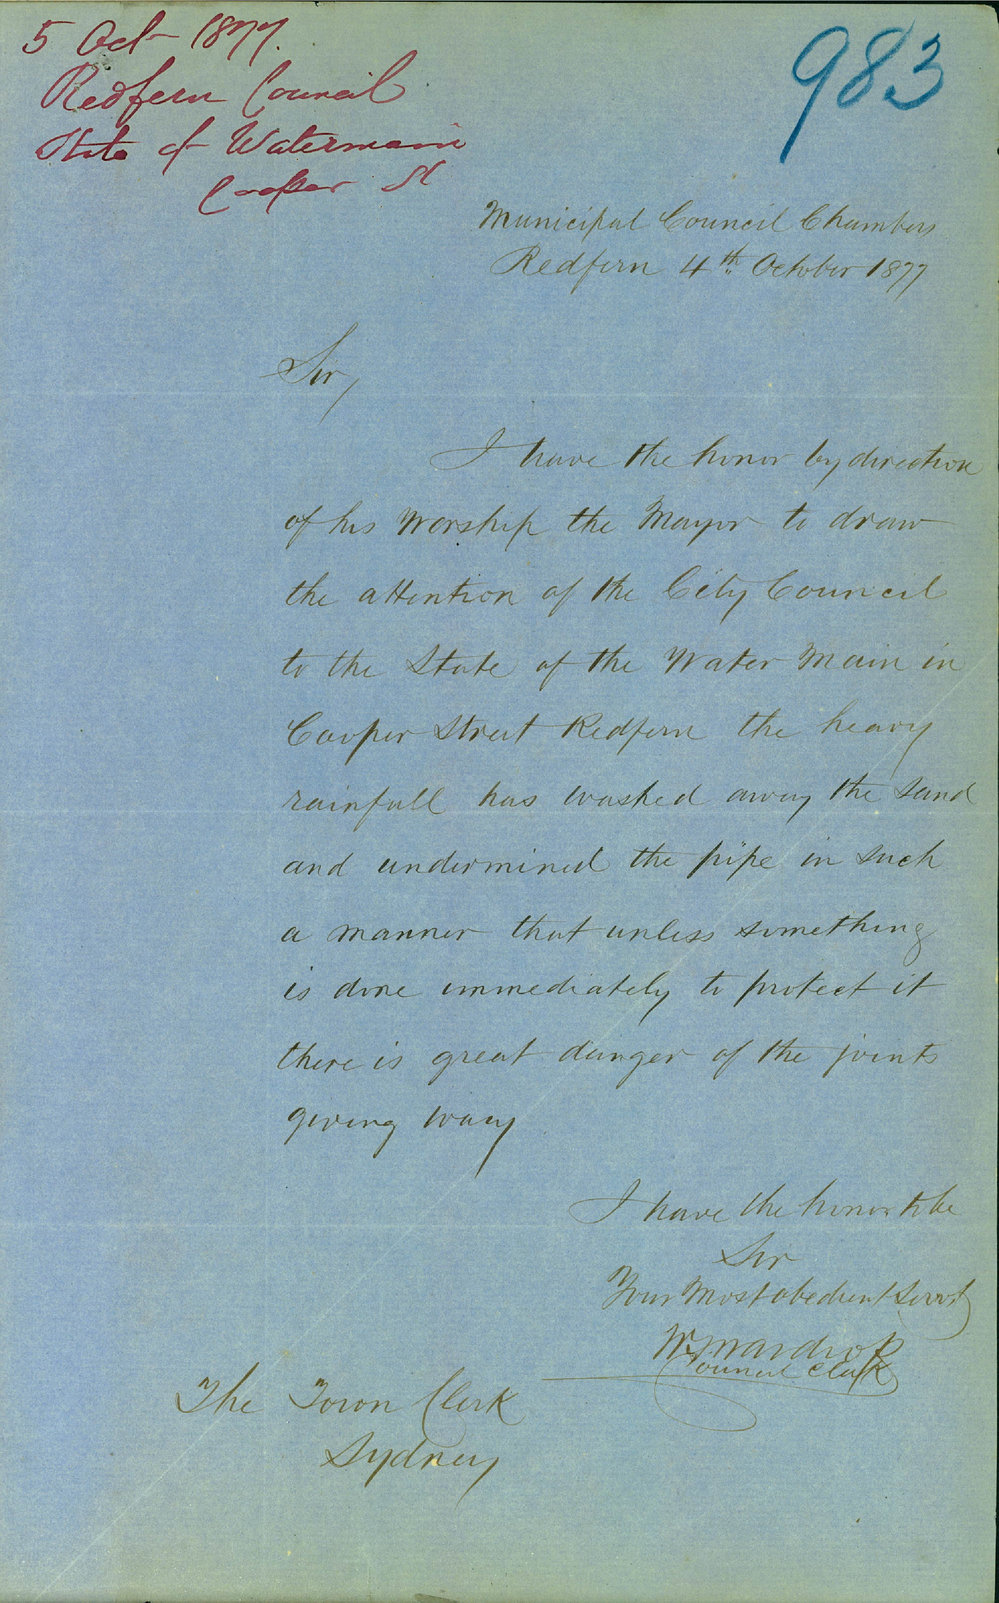 5 Oct 1877.
Redfern Council
State of Watermain
Cooper St
983
Municipal Council Chambers
Redfern 4th October 1877
Sir,
I have the honor by direction
of his Worship the Mayor to draw
the attention of the City Council
to the State of the Water Main in
Cooper Street Redfern the heavy
rainfall has washed away the sand
and undermined the pipe in such
a manner that unless something
is done immediately to protect it
there is great danger of the joints
giving way
I have the honor to be
Sir
Your Most obedient Servt
W Wardrop
Council Clerk
The Town Clerk
Sydney